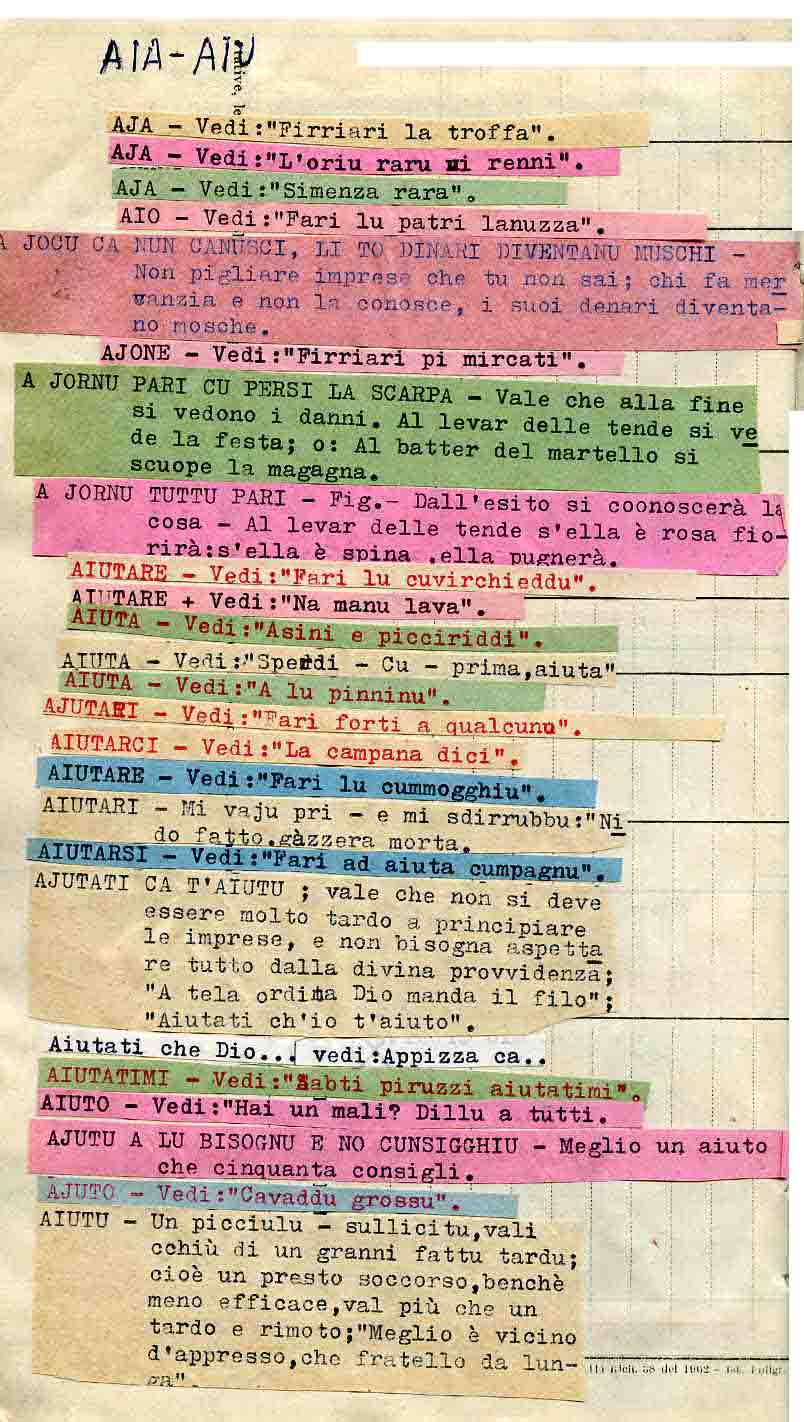 AIA-AIU
ative, le
AJA - Vedi:"Firriari la troffa".
AJA - Vedi:"L'oriu raru ui renni".
AJA - Vedi:"Simenza rara".
AIO - Vedi:"Fari lu patri lanuzza".
A JOCU CA NUN CANUSCI, LI TO DINARI DIVENTANU MUSCHI -
Non pigliare imprese che tu non sai; chi fa mer
wanzia e non la conosce, i suoi denari diventa-
no mosche.
AJONE - Vedi:"Firriari pi mircati".
A JORNU PARI CU PERSI LA SCARPA - Vale che alla fine
si vedono i danni. Al levar delle tende si ve
de la festa; o: Al batter del martello si
scuope la magagna.
A JORNU TUTTU PARI - Fig.- Dall'esito si coonoscerà la
cosa - Al levar delle tende s'ella è rosa fio-
rirà:s'ella è spina ,ella pugnerà.
AIUTARE - Vedi:"Fari lu cuvirchieddu".
AIUTARE + Vedi:"Na manu lava".
AIUTA - Vedi:"Asini e picciriddi".
AIUTA - Vedi:"Sperdi - Cu - prima,aiuta"
AIUTA - Vedi:"A lu pinninu".
AJUTARI - Vedi:"Fari forti a qualcunu".
AIUTARCI - Vedi:"La campana dici".
AIUTARE - Vedi:"Fari lu cummogghiu".
AIUTARI - Mi vaju pri - e mi sdirrubbu:"Ni
do fatto,gàzzera morta.
AIUTARSI - Vedi:"Fari ad aiuta cumpagnu".
AJUTATI CA T'AIUTU ; vale che non si deve
essere molto tardo a principiare
le imprese, e non bisogna aspetta
re tutto dalla divina provvidenza;
"A tela ordima Dio manda il filo";
"Aiutati ch'io t'aiuto".
Aiutati che Dio... vedi:Appizza ca..
AIUTATIMI - Vedi:"Sabti piruzzi aiutatimi".
AIUTO - Vedi:"Hai un mali? Dillu a tutti.
AJUTU A LU BISOGNU E NO CUNSIGGHIU - Meglio un aiuto
che cinquanta consigli.
AJUTO - Vedi:"Cavaddu grossu".
AIUTU - Un picciulu - sullicitu,vali
cchiù di un granni fattu tardu;
cioè un presto soccorso,benchè
meno efficace,val più che un
tardo e rimoto;"Meglio è vicino
d'appresso,che fratello da lun-
ga".
58 del 1962